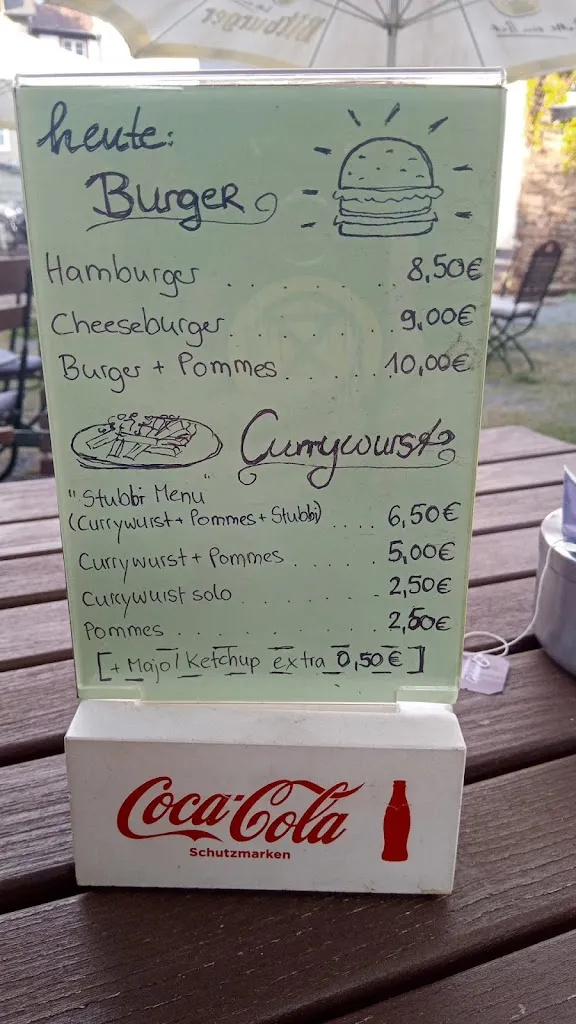 Bitburger
heute:
Burger
Hamburger ........ 8,50€
Cheeseburger ........ 9,00€
Burger + Pommes ...... 10,00€
Currywurst
"Stubbi Menu"
(Currywurst + Pommes + Stubbi) .... 6,50€
Currywurst + Pommes ...... 5,00€
Currywurst solo ........ 2,50€
Pommes ........ 2,50€
[+ Majo / Ketchup extra 0,50€]
Coca-Cola
Schutzmarken